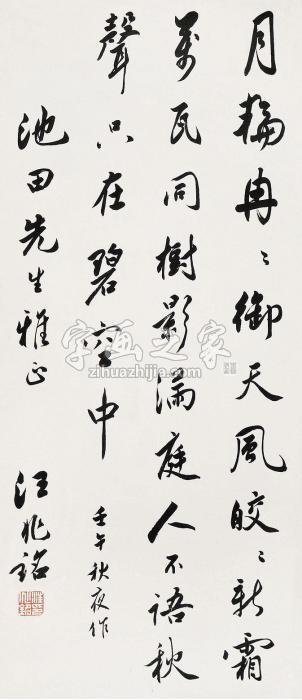 月輪冉〻御天風皎〻新霜
萬瓦同樹影滿庭人不語秋
聲只在碧空中
壬午秋夜作
池田先生雅正
汪兆銘
字画之家
zihuazhijia.com